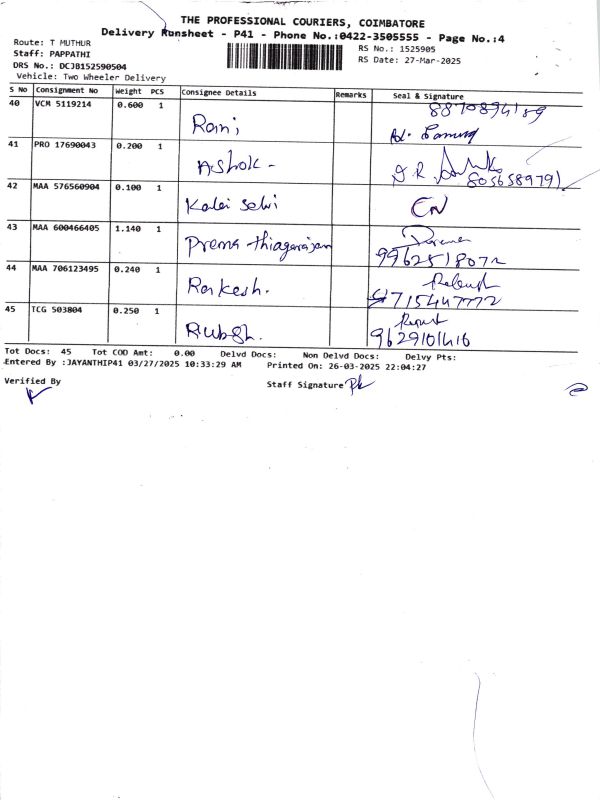 THE PROFESSIONAL COURIERS, COIMBATORE
Delivery Runsheet - P41 - Phone No.:0422-3505555 - Page No.:4
Route: T MUTHUR
Staff: PAPPATHI
DRS No.: DCJB152590504
Vehicle: Two Wheeler Delivery
RS No.: 1525905
RS Date: 27-Mar-2025
S No Consignment No Weight PCS Consignee Details Remarks Seal & Signature
40 VCM 5119214 0.600 1 Rani 8870894189
41 PRO 17690043 0.200 1 Ashok - 8056589791
42 MAA 576560904 0.100 1 Kalai selvi
43 MAA 600466405 1.140 1 Prema thiagarajan 9962518072
44 MAA 706123495 0.240 1 Rakesh. 9715447772
45 TCG 503804 0.250 1 9629101416
Tot Docs: 45 Tot COD Amt: 0.00 Delvd Docs: Non Delvd Docs: Delvy Pts:
Entered By :JAYANTHIP41 03/27/2025 10:33:29 AM Printed On: 26-03-2025 22:04:27
Verified By Staff Signature